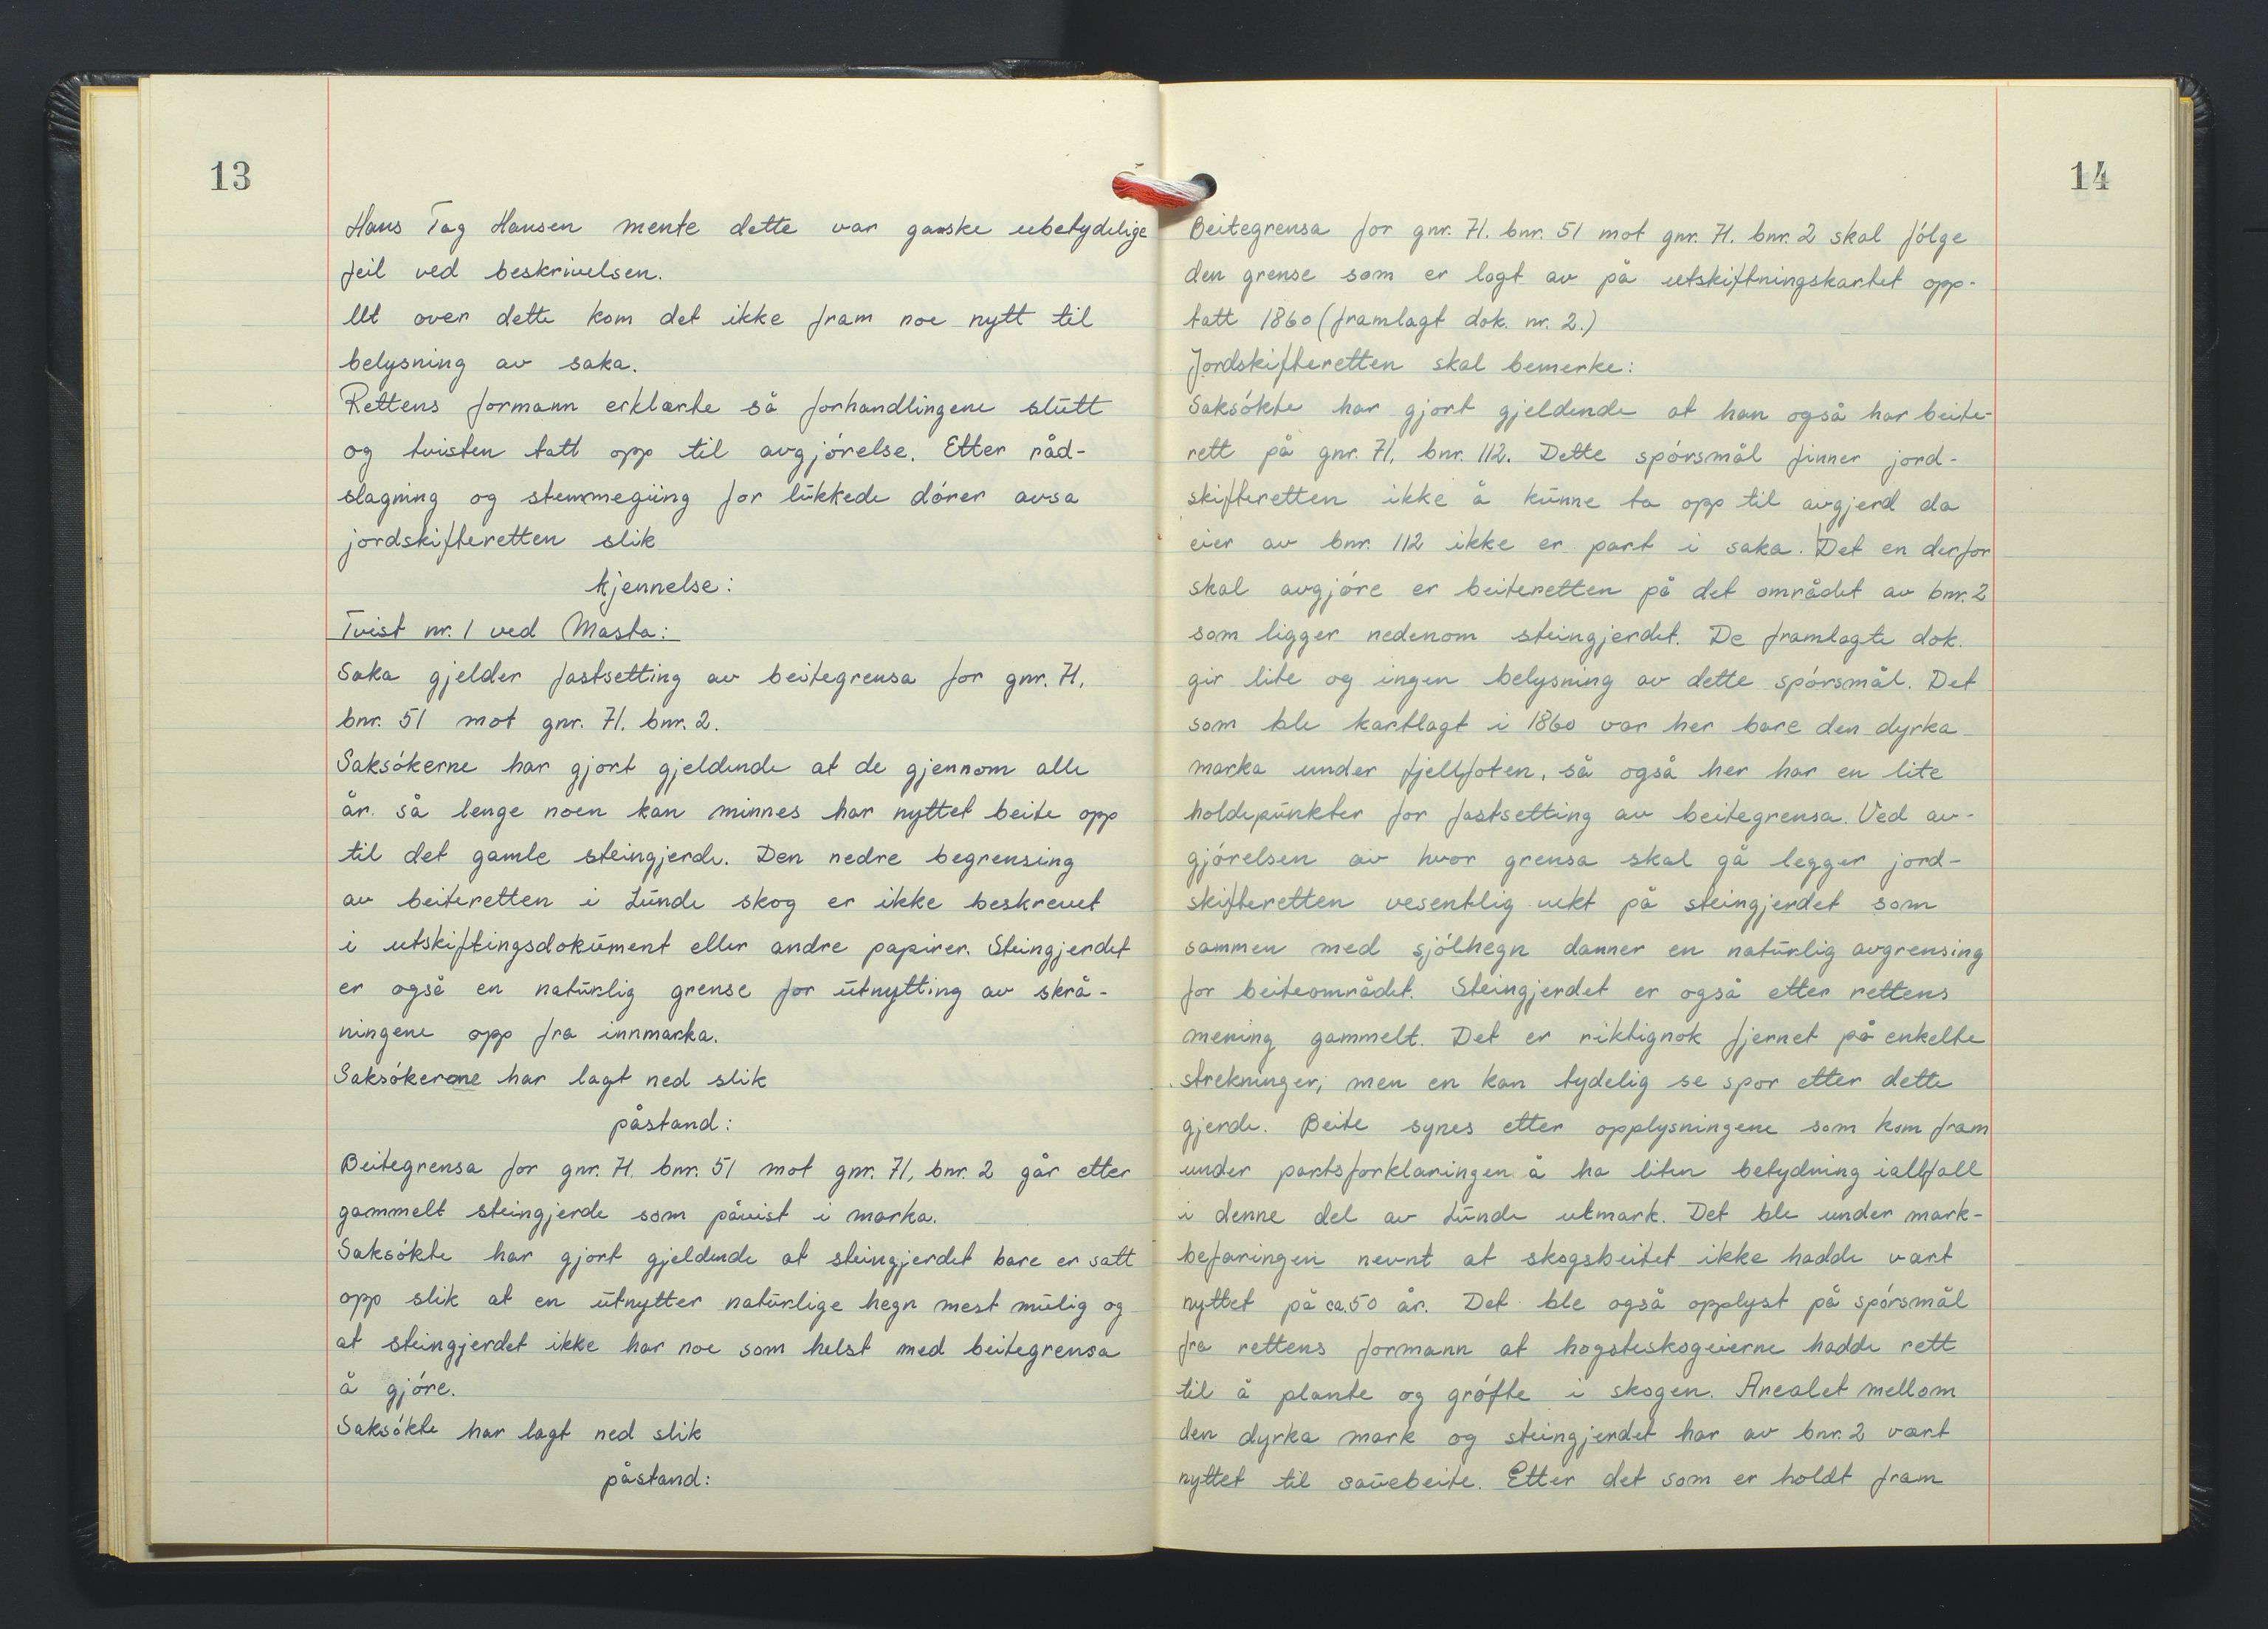 13
Hans Tag Hansen mente dette var ganske ubetydelige
feil ved beskrivelsen.
Ut over dette kom det ikke fram noe nytt til
belysning av saka.
Rettens formann erklærte så forhandlingene slutt
og tvisten tatt opp til avgjórelse. Etter råd-
slagning og stemmegiing for lukkede dórer avsa
jordskifteretten slik
kjennelse:
Tvist nr. 1 ved Masta:
Saka gjelder fastsetting av beitegrensa for gnr. 71,
bnr. 51 mot gnr. 71. bnr. 2.
Saksókerne har gjort gjeldende at de gjennom alle
år så lenge noen kan minnes har nyttet beite opp
til det gamle steingjerde. Den nedre begrensing
av beiteretten i Lunde skog er ikke beskrevet
i utskiftingsdokument eller andre papirer. Steingjerdet
er også en naturlig grense for utnytting av skrå-
ningene opp fra innmarka.
Saksókerane har lagt ned slik
påstand:
Beitegrensa for gnr. 71. bnr. 51 mot gnr. 71, bnr. 2 går etter
gammelt steingjerde som påvist i marka.
Saksókte har gjort gjeldende at steingjerdet bare er satt
opp slik at en utnytter naturlige hegn mest mulig og
at steingjerdet ikke har noe som helst med beitegrensa
å gjóre.
Saksókte har lagt ned slik
påstand:
14
Beitegrensa for gnr. 71. bnr. 51 mot gnr. 71. bnr. 2 skal fólge
den grense som er lagt av på utskiftningskartet opp-
tatt 1860 (framlagt dok. nr. 2.)
Jordskifteretten skal bemerke:
Saksókte har gjort gjeldende at han også har beite-
rett på gnr. 71, bnr. 112. Dette spórsmål finner jord-
skifteretten ikke å kunne ta opp til avgjerd da
eier av bnr. 112 ikke er part i saka. Det en derfor
skal avgjóre er beiteretten på det området av bnr. 2
som ligger nedenom steingjerdet. De framlagte dok.
gir lite og ingen belysning av dette spórsmål. Det
som ble kartlagt i 1860 var her bare den dyrka
marka under fjellfoten, så også her har en lite
holdepunkter for fastsetting av beitegrensa. Ved av-
gjórelsen av hvor grensa skal gå legger jord-
skifteretten vesentlig vekt på steingjerdet som
sammen med sjólhegn danner en naturlig avgrensing
for beiteområdet. Steingjerdet er også etter rettens
mening gammelt. Det er riktignok fjernet på enkelte
strekninger, men en kan tydelig se spor etter dette
gjerde. Beite synes etter opplysningene som kom fram
under partsforklaringen å ha liten betydning iallfall
i denne del av Lunde utmark. Det ble under mark-
befaringen nevnt at skogsbeitet ikke hadde vært
nyttet på ca. 50 år. Det ble også opplyst på spórsmål
fra rettens formann at hogsteskogeierne hadde rett
til å plante og grófte i skogen. Arealet mellom
den dyrka mark og steingjerdet har av bnr. 2 vært
nyttet til sauebeite. Etter det som er holdt fram